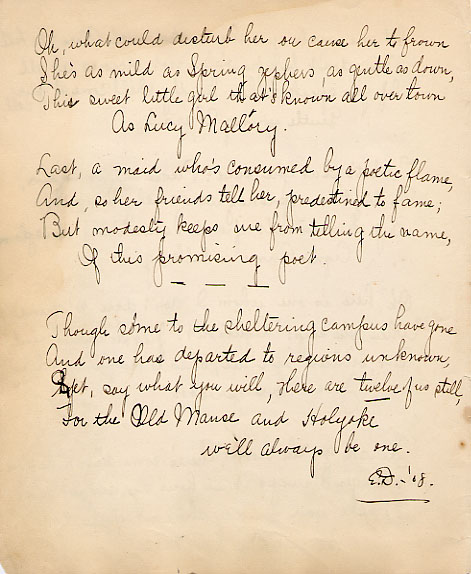 Oh, what could disturb her or cause her to frown
She's as mild as Spring zephers, as gentle as down,
This sweet little girl that's known all over town
As Lucy Mallory.
Last, a maid who's consumed by a poetic flame,
And, so her friends tell her, predestined to fame;
But modesty keeps me from telling the name,
Of this promising poet.
Though some to the sheltering campus have gone
And one has departed to regions unknown,
Yet, say what you will, there are twelve of us still,
For the Old Manse and Holyoke
we'll always be one.
E.D. - '08.